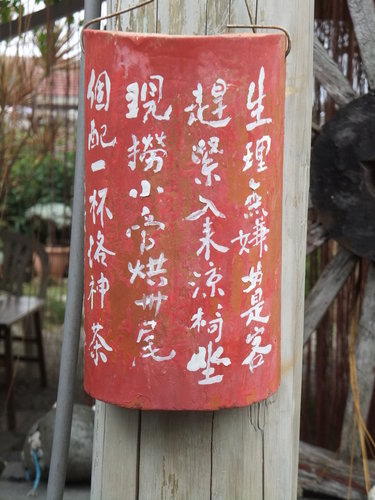 生理無嫌是客
趕緊入來涼椅坐
現撈小烘卅尾
個配一杯神茶